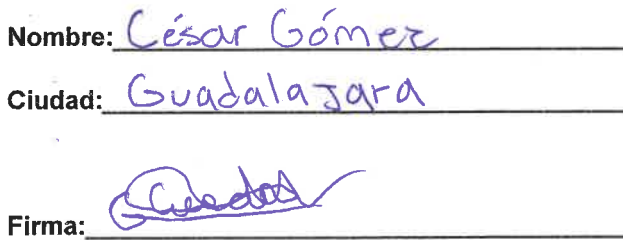 Nombre: César Gómez
Ciudad: Guadalajara
Firma: